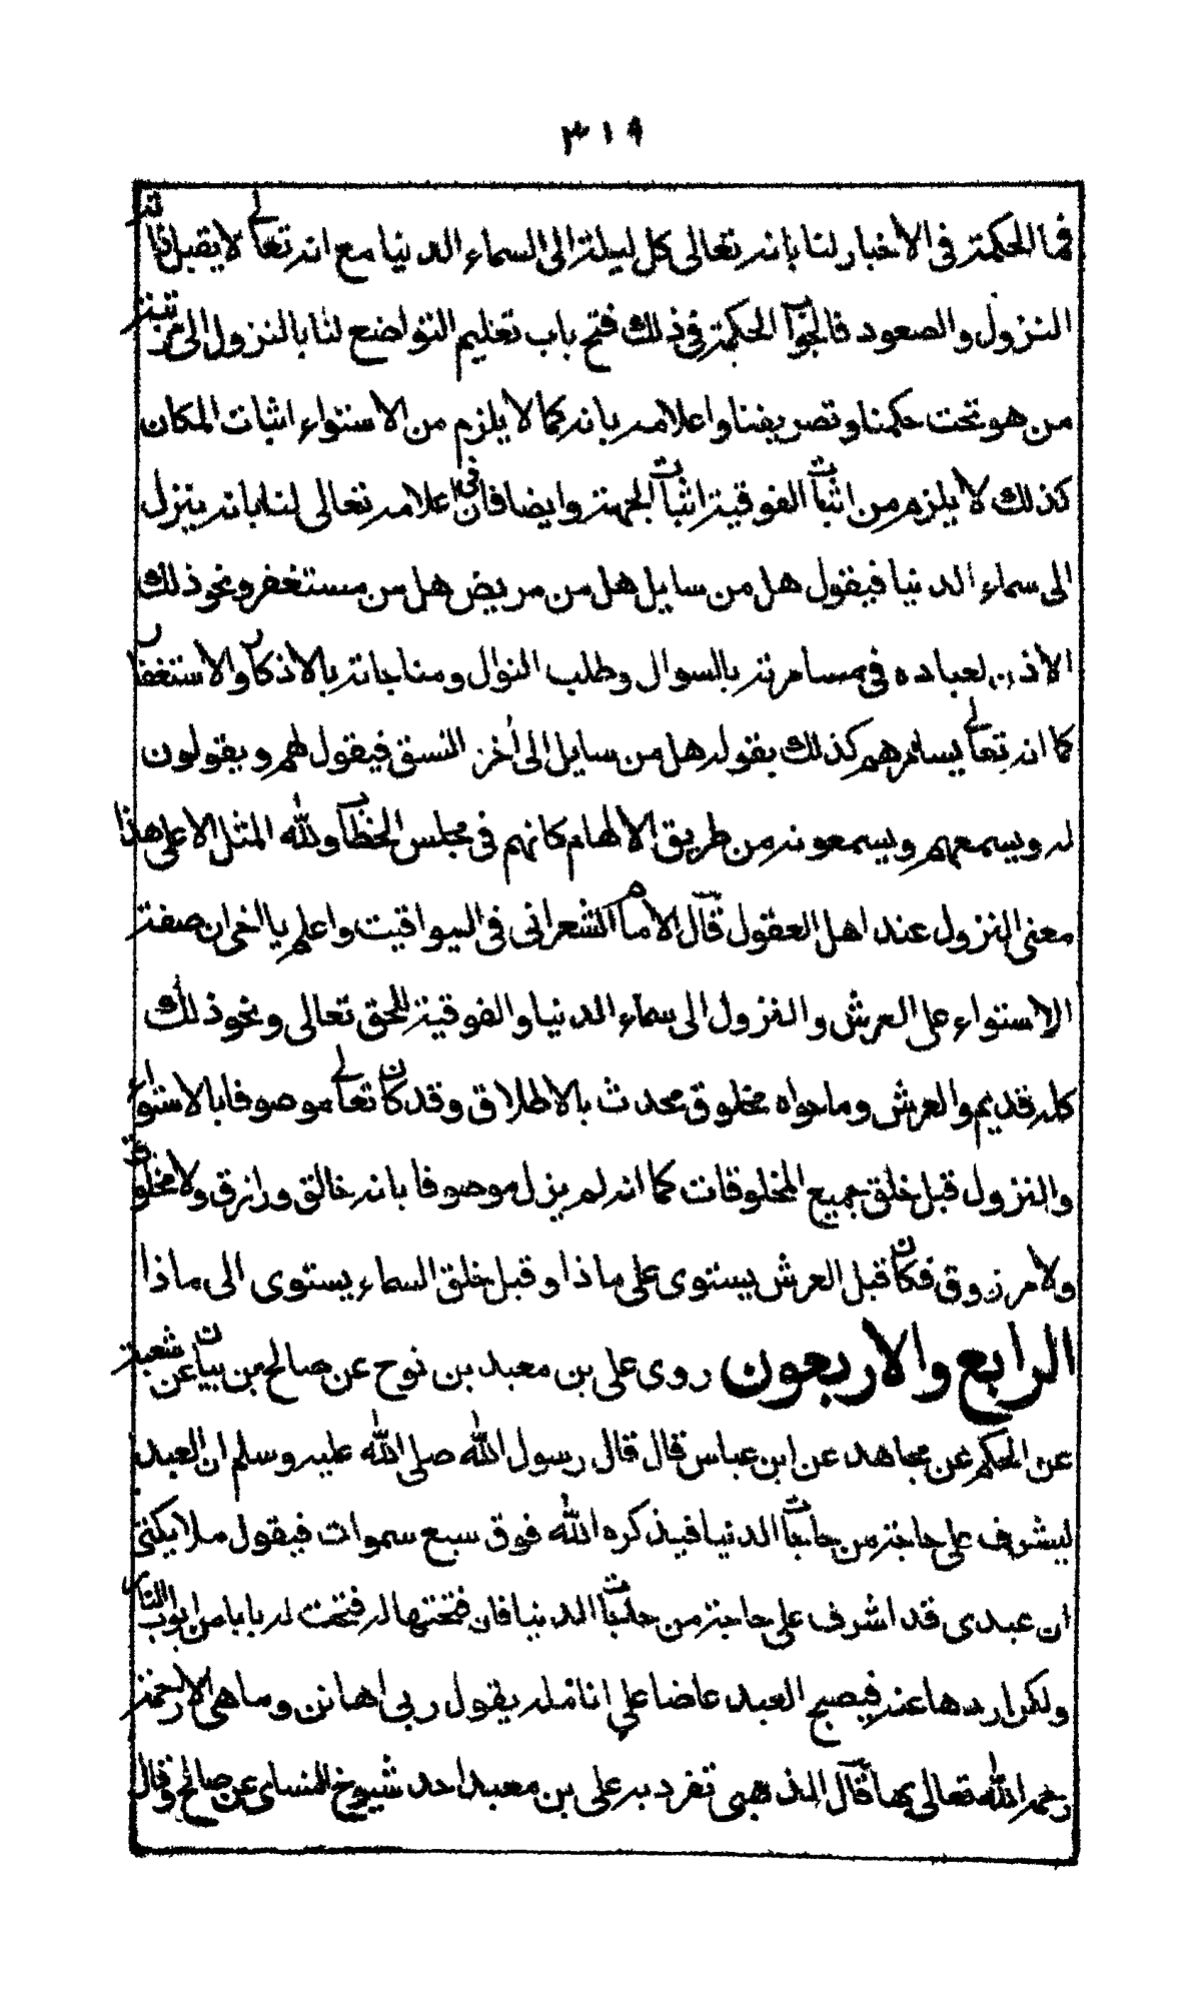 ٣١٩
فما الحكمة في الاخبار لنا بانه تعالى كل ليلة الى السماء الدنيا مع انه تعالى لا يقبل ذاته
النزول والصعود فالجواب الحكمة في ذلك فتح باب تعليم التواضع لنا بالنزول الى مرتبة
من هو تحت حكمنا وتصريفنا واعلامه بانه كما لا يلزم من الاستواء اثبات المكان
كذلك لا يلزم من اثبات الفوقية اثبات الجهة وايضا فان في اعلامه تعالى لنا بانه ينزل
الى سماء الدنيا فيقول هل من سايل هل من مريض هل من مستغفر ونحو ذلك
الاذن لعباده في مسامرته بالسوال وطلب النوال ومناجاته بالاذكار والاستغفار
كما انه تعالى يسامرهم كذلك بقوله هل من سايل الى أخر النسق فيقول لهم ويقولون
له ويسمعهم ويسمعونه من طريق الالهام كانهم في مجلس الخطاب ولله المثل الاعلى هذا
معنى النزول عند اهل العقول قال الامام الشعراني في اليواقيت واعلم يا اخي ان صفة
الاستواء على العرش والنزول الى سماء الدنيا والفوقية للحق تعالى ونحو ذلك
كله قديم والعرش وما حواه مخلوق محدث بالاطلاق وقد كان تعالى موصوفا بالاستواء
والنزول قبل خلق جميع المخلوقات كما انه لم يزل موصوفا بانه خالق ورازق ولا مخلوق
ولا مرزوق فكان قبل العرش يستوى على ماذا وقبل خلق السماء يستوى الى ماذا
الرابع والاربعون روى على بن معبد بن نوح عن صالح بن بيان عن شعبة
عن الحكم عن مجاهد عن ابن عباس قال قال رسول الله صلى الله عليه وسلم ان العبد
ليشرف على حاجة من حاجات الدنيا فيذكره الله فوق سبع سموات فيقول ملايكتى
ان عبدى قد اشرف على حاجة من حاجات الدنيا فان فتحتها له فتحت له بابا من ابواب النار
ولكن اردها عنه فيصبح العبد عاضا على انامله يقول ربى اهانن وما هى الا رحمة
رحمه الله تعالى بها قال الذهبى تفرد به على بن معبد احد شيوخ النساى عن صالح وقال